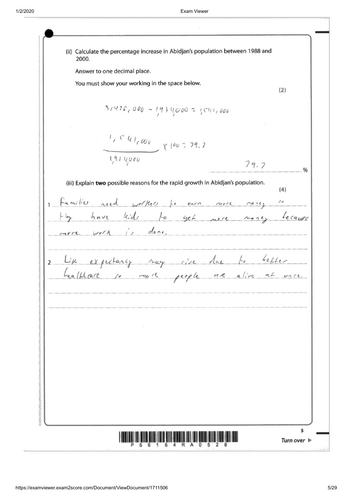 1/2/2020 Exam Viewer
(ii) Calculate the percentage increase in Abidjan's population between 1988 and
2000.
Answer to one decimal place.
You must show your working in the space below.
(2)
- 1,934,000 =
1,541,000
x 100 = 79.7
1,934,000
79.7 %
(iii) Explain two possible reasons for the rapid growth in Abidjan's population.
(4)
1 Families need workers to earn more money so
they have kids to get more money because
more work is done.
2 Life expectancy may rise due to better
healthcare so more people are alive at once.
5
Turn over
P56164RA0528
https://examviewer.exam2score.com/Document/ViewDocument/1711506 5/29